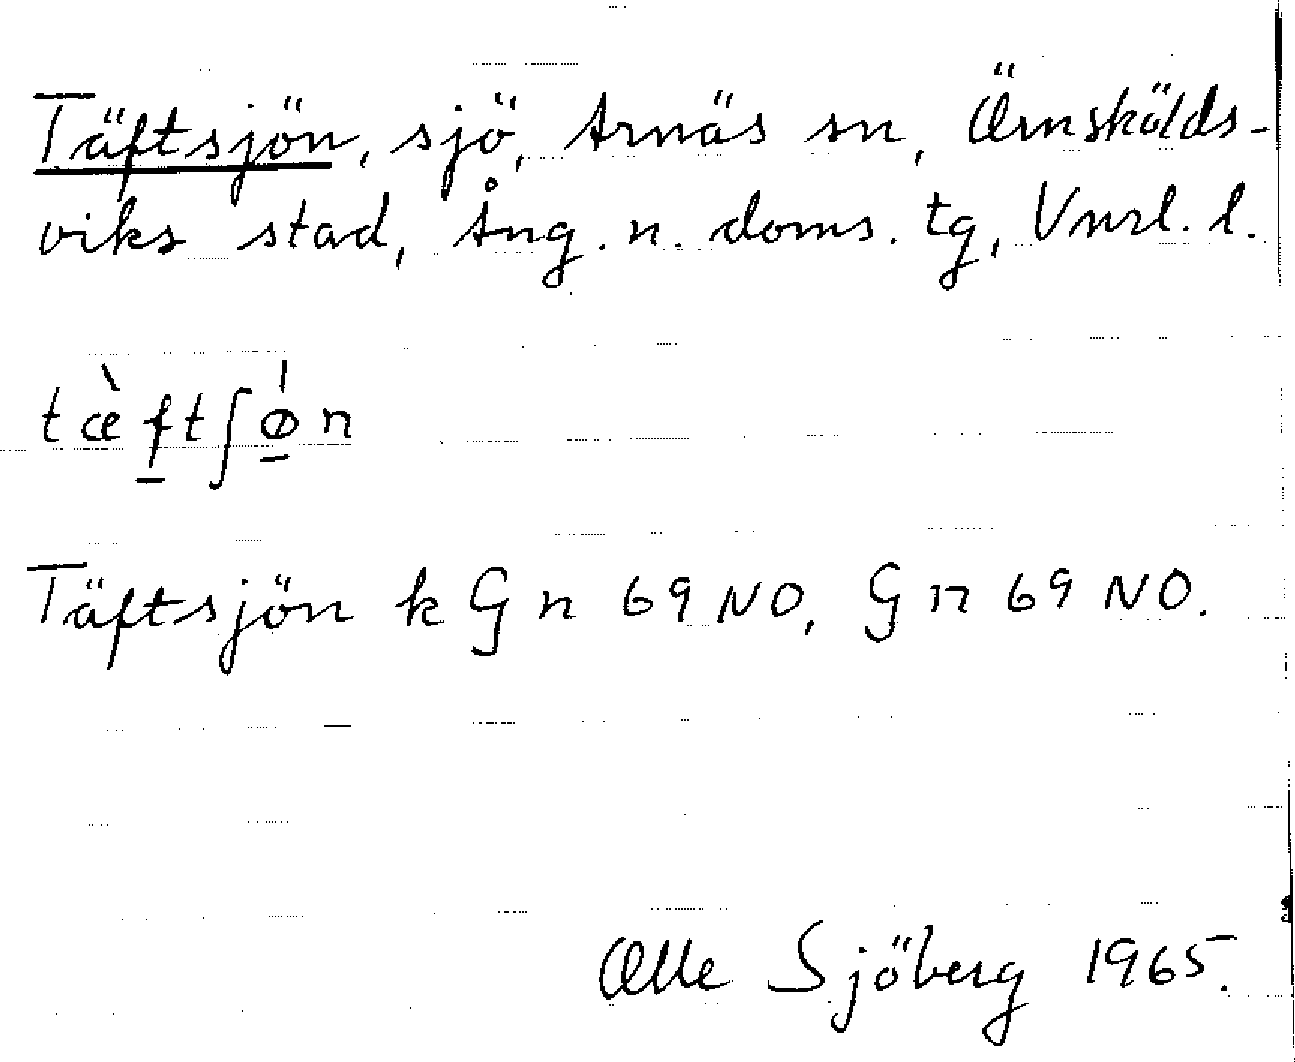 Täftsjön, sjö, Arnäs sn, Örnskölds-
viks stad, Ång. n. doms. tg, Vnrl. l.
tæ̀f̲tʃǿ̲n
Täftsjön k G n 69 NO, G n 69 NO.
Olle Sjöberg 1965.